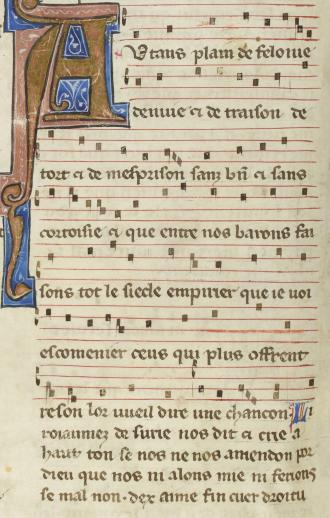 Utans plain de felonie
denvie ⁊ de traison de
tort ⁊ de mesprison sanz bñ ⁊ sans
cortoisie ⁊ que entre nos barons fai
sons tot le siecle empirier que ie voi
escomenier ceus qui plus offrent
reson lor vueil dire une chancon Li
roiaumez de surie nos dit ⁊ crie a
haut ton se nos ne nos amendon por
dieu que nos ni alons mie ni ferions
se mal non · dex aime fin cuer droitu